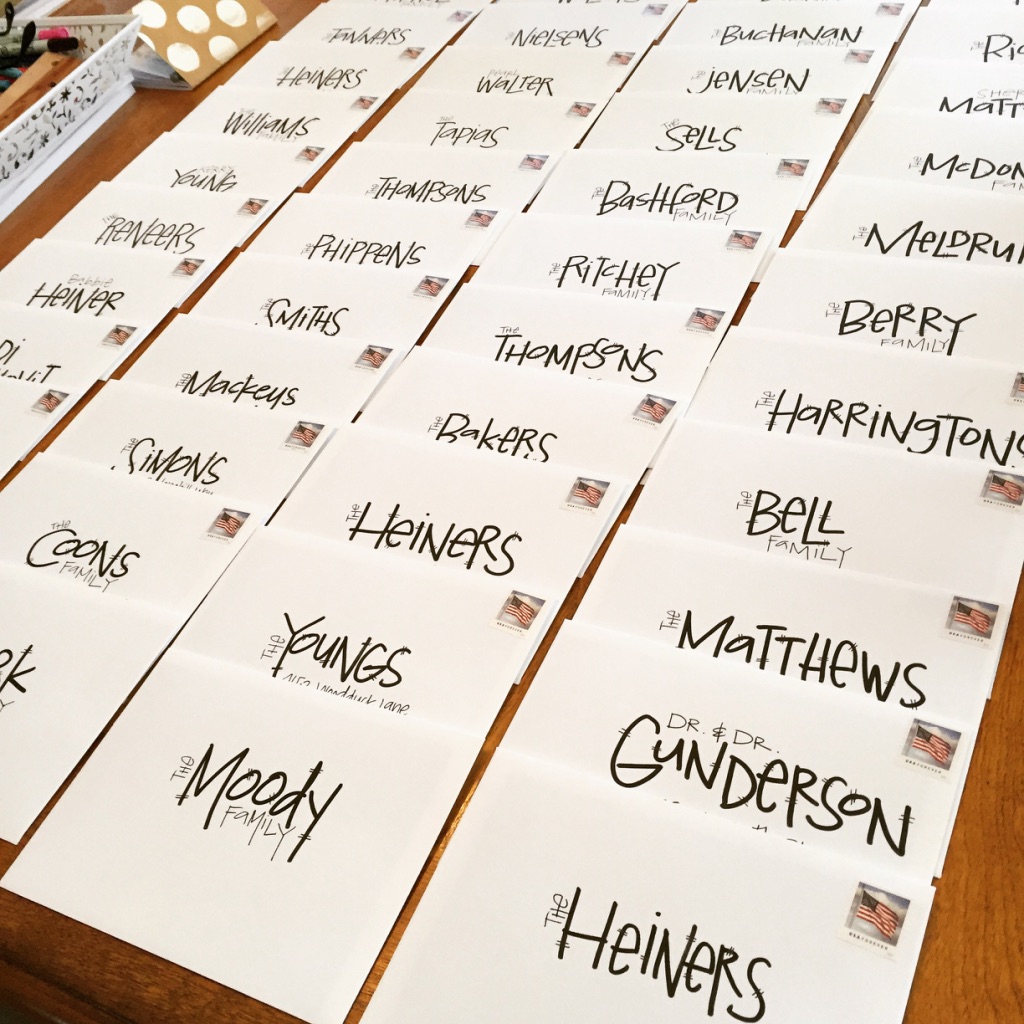 TANNERS
HEINERS
WILLIAMS
FAMILY
YOUNG
THE
RENEERS
Bobbie
HEINER
THE
COONS
FAMILY
NIELSENS
WALTER
THE
TAPIAS
THE
THOMPSONS
THE
PHIPPENS
THE
SMITHS
THE
MacKeys
THE
SIMONS
THE
HEINERS
THE
YOUNGS
Woodduck Lane
THE
Moody
FAMILY
BUCHANAN
FAMILY
THE
JENSEN
FAMILY
THE
SELLS
THE
BASHFORD
FAMILY
THE
RITCHEY
FAMILY
THE
THOMPSONS
THE
BAKERS
THE
BERRY
FAMILY
THE
HARRINGTONS
THE
BELL
FAMILY
THE
MATTHEWS
DR. & DR.
GUNDERSON
THE
HEINERS